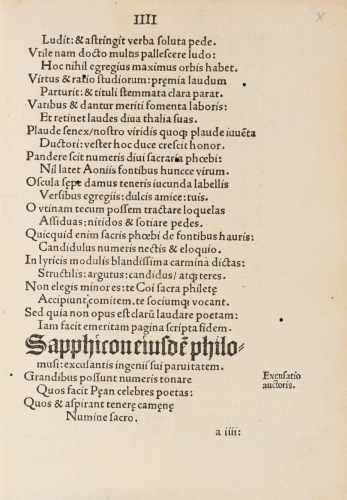 IIII
Ludit: & astringit verba soluta pede.
Vtile nam docto multus pallescere ludo:
Hoc nihil egregius maximus orbis habet.
Virtus & ratio studiorum: pręmia laudum
Parturit: & tituli stemmata clara parat.
Vatibus & dantur meriti fomenta laboris:
Et retinet laudes diua thalia suas.
Plaude senex/nostro viridis quoqȝ plaude iuuēta
Ductori: vester hoc duce crescit honor.
Pandere scit numeris diui sacraria phœbi:
Nil latet Aoniis fontibus huncce virum.
Oscula sępe damus teneris iucunda labellis
Versibus egregiis: dulcis amice: tuis.
O vtinam tecum possem tractare loquelas
Assiduas: nitidos & sotiare pedes.
Quicquid enim sacris phœbi de fontibus hauris:
Candidulus numeris nectis & eloquio.
In lyricis modulis blandissima carmina dictas:
Structilis: argutus: candidus/ atqȝ teres.
Non elegis minor es: te Coi sacra philetę
Accipiunt comitem. te sociumqȝ vocant.
Sed quia non opus est clarū laudare poetam:
Iam facit emeritam pagina scripta fidem.
Sapphicon eiusdē philo-
musi: excusantis ingenii sui paruitatem.
Grandibus possunt numeris tonare
Excusatio
auctoris.
Quos facit Pęan celebres poetas:
Quos & aspirant tenerę camęnę
Numine sacro.
a iiii: